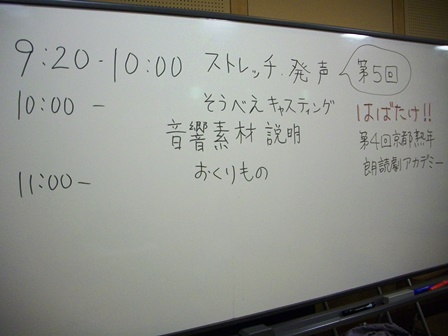 9:20-10:00 ストレッチ.発声 第5回
10:00- そうべえキャスティング はばたけ!!
音響素材説明 第4回京都熟年
朗読劇アカデミー
11:00- おくりもの